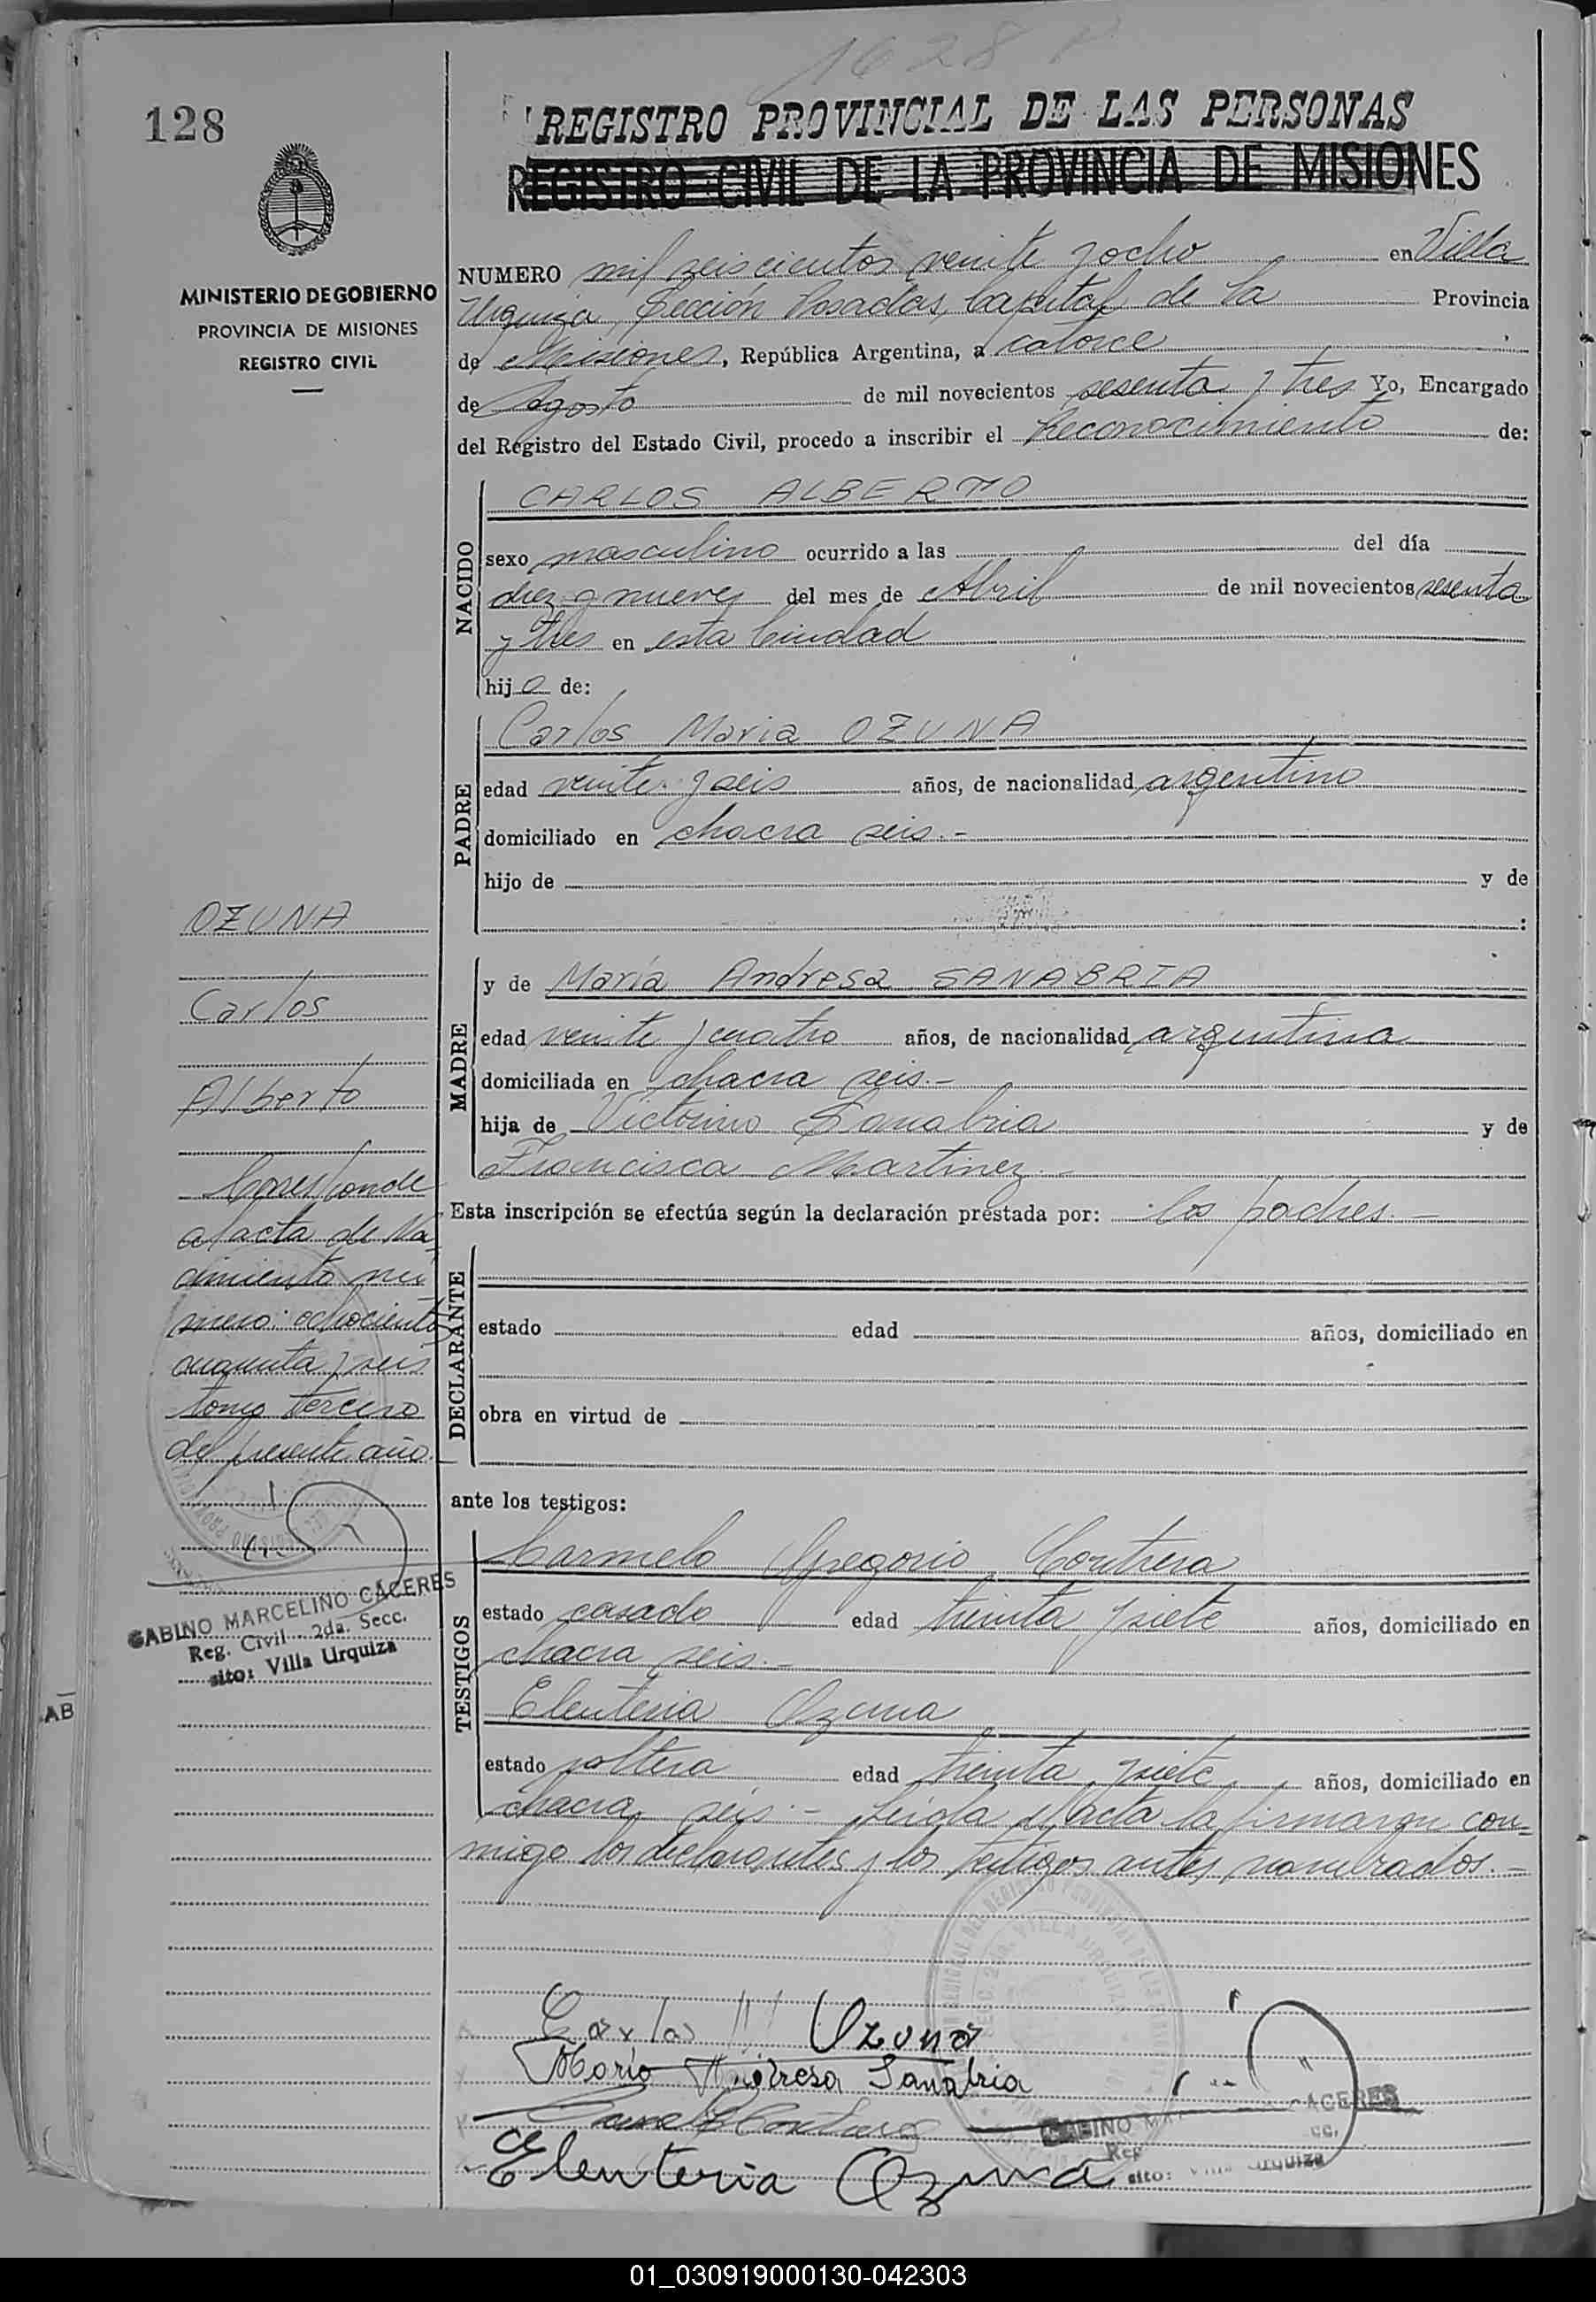 1628
128
REGISTRO PROVINCIAL DE LAS PERSONAS
REGISTRO CIVIL DE LA PROVINCIA DE MISIONES
MINISTERIO DE GOBIERNO
PROVINCIA DE MISIONES
REGISTRO CIVIL
NUMERO mil seiscientos veinte y ocho en Villa
Urquiza, Sección Posadas, Capital de la Provincia
de Misiones, República Argentina, a catorce
de Agosto de mil novecientos sesenta y tres Yo, Encargado
del Registro del Estado Civil, procedo a inscribir el Reconocimiento de:
NACIDO
CARLOS ALBERTO
sexo masculino ocurrido a las del día
diez y nueve del mes de Abril de mil novecientos sesenta
y tres en esta Ciudad
hijo de:
PADRE
Carlos Maria OZUNA
edad veinte y seis años, de nacionalidad argentino
domiciliado en chacra seis.-
hijo de y de
:
MADRE
y de María Andresa SANABRIA
edad veinte y cuatro años, de nacionalidad argentina
domiciliada en chacra seis.-
hija de Victorino Sanabria y de
Francisca Martinez.-
Esta inscripción se efectúa según la declaración prestada por: los padres.-
DECLARANTE
estado edad años, domiciliado en
obra en virtud de
ante los testigos:
TESTIGOS
Carmelo Gregorio Contrera
estado casado edad treinta y siete años, domiciliado en
chacra seis.-
Eleuteria Ozuna
estado soltera edad treinta y siete años, domiciliado en
chacra seis.- Leída el acta la firmaron con-
migo los declarantes y los testigos antes nombrados.-
Carlos M Ozuna
Maria Andresa Sanabria
Eleuteria Ozuna
GABINO MA CACERES
Reg cc.
sito: Villa Urquiza
OZUNA
Carlos
Alberto
Corresponde
al acta de Na-
cimiento nú-
mero: ochocientos
cuarenta y seis
tomo tercero
del presente año.
GABINO MARCELINO CACERES
Reg. Civil 2da. Secc.
sito: Villa Urquiza
AB
01_030919000130-042303